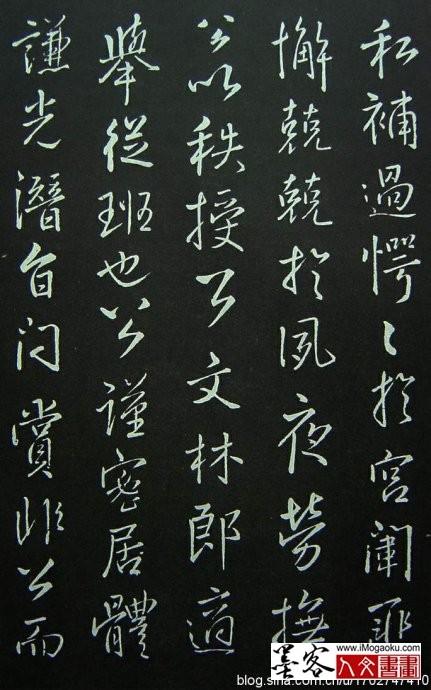 私補過愕〻於宮闈匪
懈兢兢於夙夜勞撫
公以秩授公文林郎適
舉從班也公謹密居體
謙光潛自賞非公而
www.iMogaoku.com
墨客
人文書畫
blog.sina.com.cn/u/1702747410